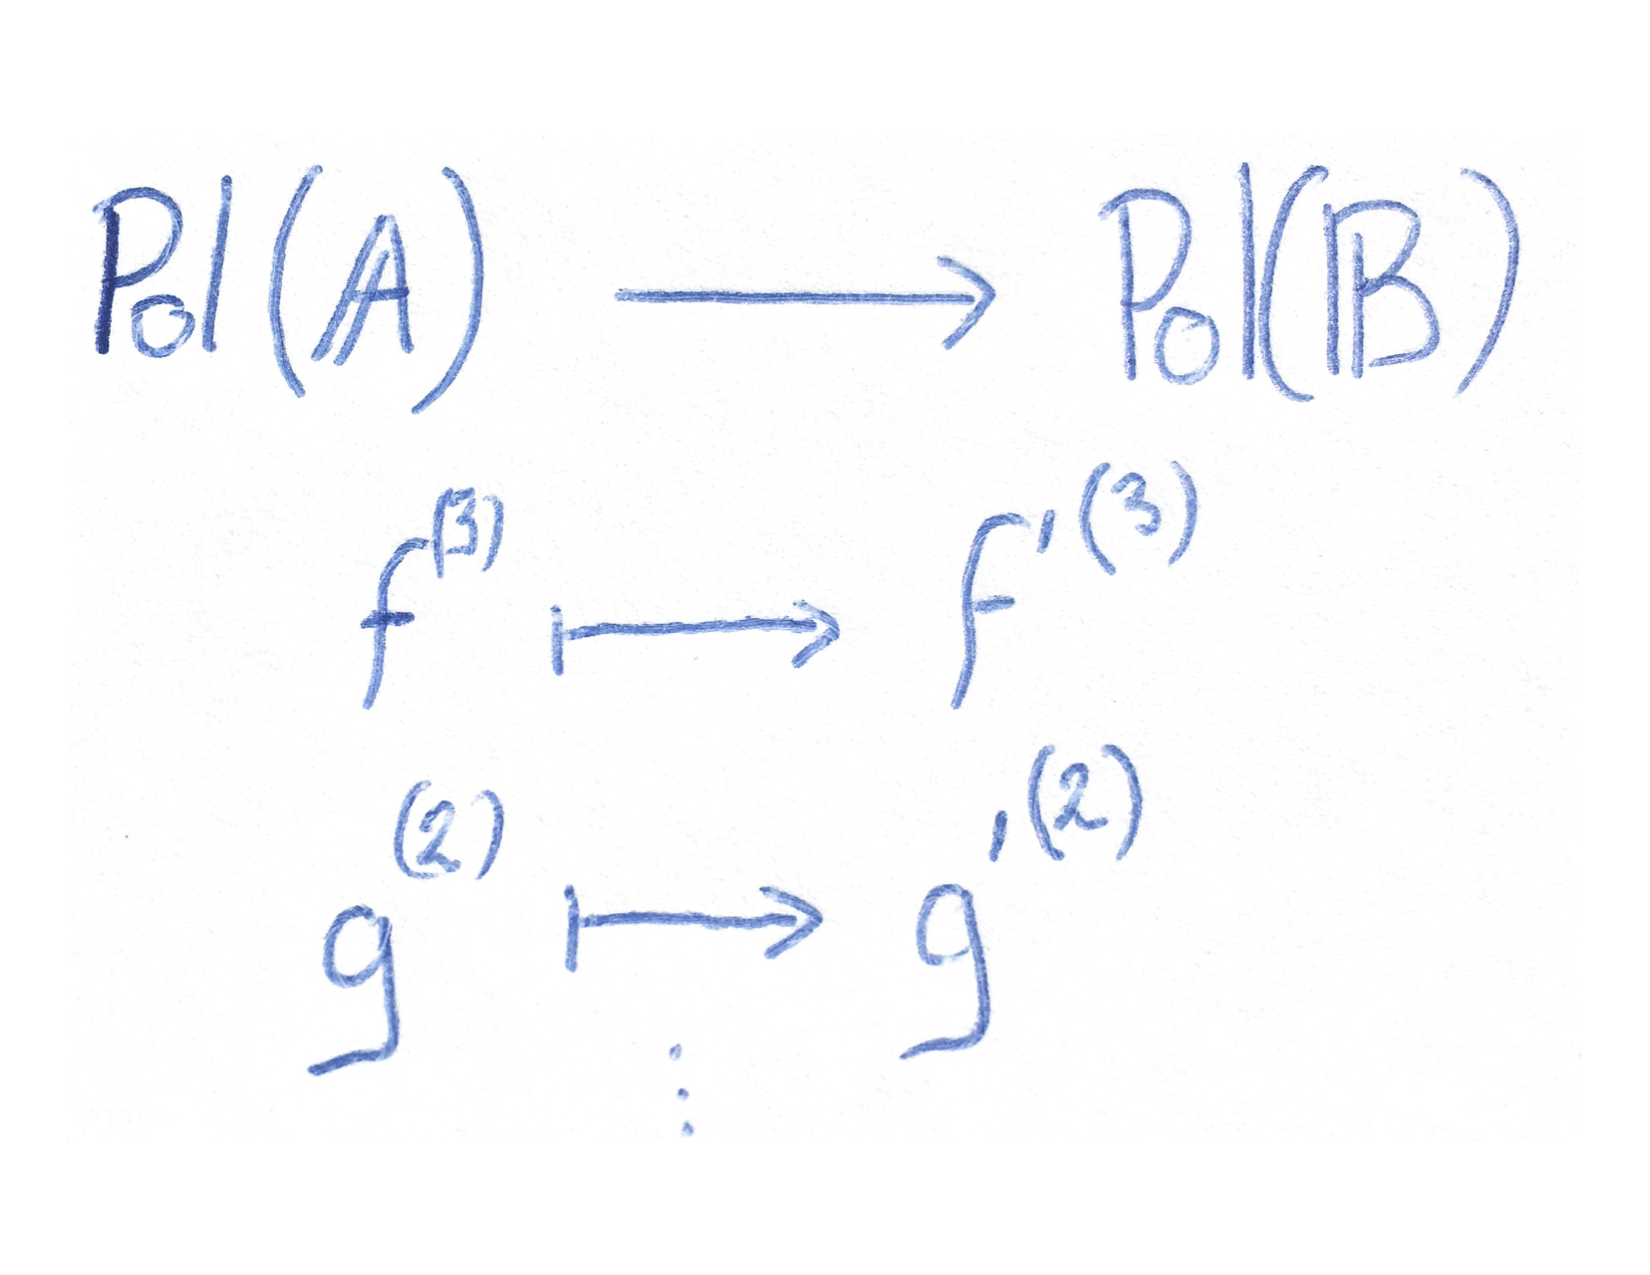 Pol(𝔸) ⟶ Pol(𝔹)
f⁽³⁾ ⟼ f′⁽³⁾
g⁽²⁾ ⟼ g′⁽²⁾
⋮